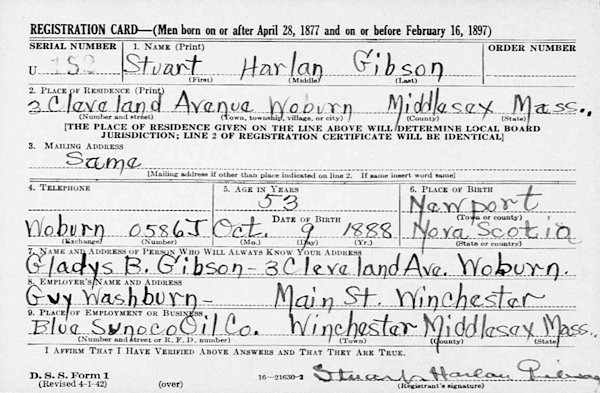 REGISTRATION CARD—(Men born on or after April 28, 1877 and on or before February 16, 1897)
SERIAL NUMBER 1. NAME (Print) ORDER NUMBER
U 152 Stuart Harlan Gibson
(First) (Middle) (Last)
2. PLACE OF RESIDENCE (Print)
3 Cleveland Avenue Woburn Middlesex Mass.,
(Number and street) (Town, township, village, or city) (County) (State)
[THE PLACE OF RESIDENCE GIVEN ON THE LINE ABOVE WILL DETERMINE LOCAL BOARD
JURISDICTION; LINE 2 OF REGISTRATION CERTIFICATE WILL BE IDENTICAL]
3. MAILING ADDRESS
Same
[Mailing address if other than place indicated on line 2. If same insert word same]
4. TELEPHONE 5. AGE IN YEARS 6. PLACE OF BIRTH
53 Newport
DATE OF BIRTH (Town or county)
Woburn 0586J Oct. 9 1888 Nova Scotia
(Exchange) (Number) (Mo.) (Day) (Yr.) (State or country)
7. NAME AND ADDRESS OF PERSON WHO WILL ALWAYS KNOW YOUR ADDRESS
Gladys B. Gibson- 3 Cleveland Ave. Woburn.
8. EMPLOYER'S NAME AND ADDRESS
Guy Washburn- Main St. Winchester
9. PLACE OF EMPLOYMENT OR BUSINESS
Blue Sunoco Oil Co. Winchester Middlesex Mass.
(Number and street or R. F. D. number) (Town) (County) (State)
I AFFIRM THAT I HAVE VERIFIED ABOVE ANSWERS AND THAT THEY ARE TRUE.
D. S. S. Form 1
(Revised 4-1-42) (over) 16—21630-2 Stuart Harlan Gibson
(Registrant's signature)